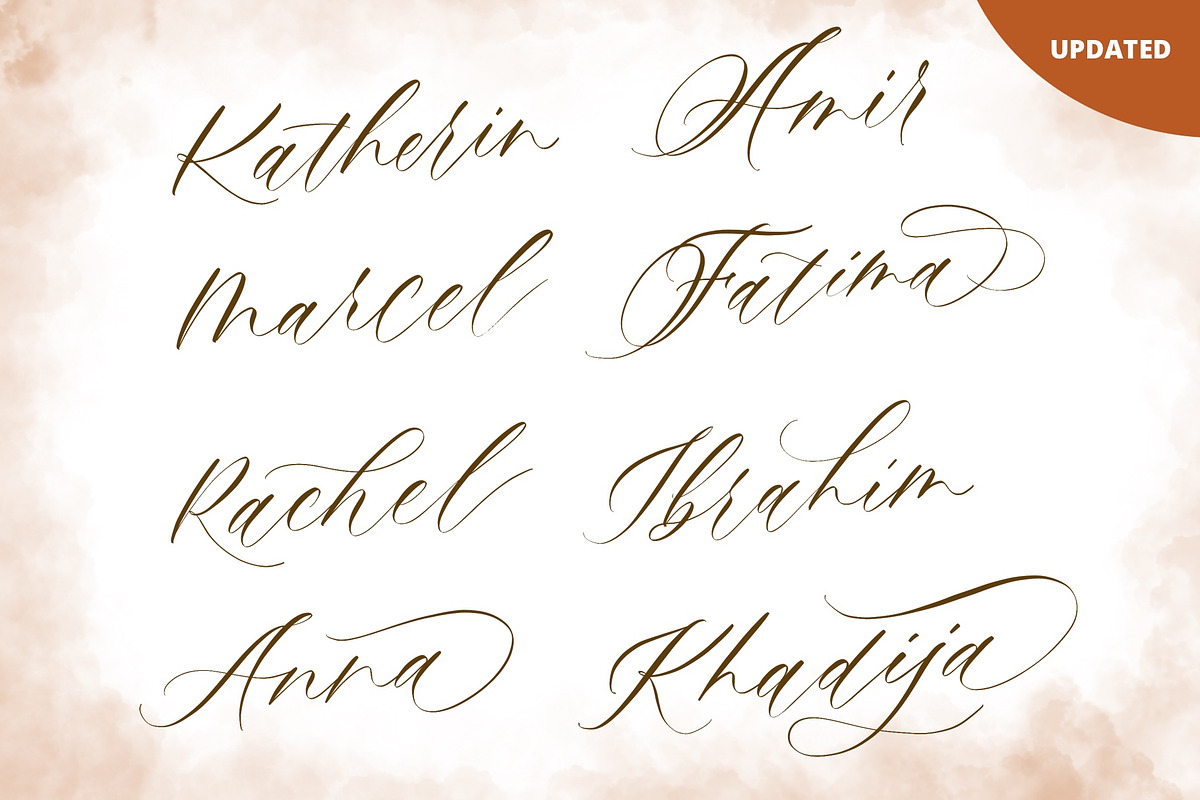 UPDATED
Katherin
Amir
Marcel
Fatima
Rachel
Ibrahim
Anna
Khadija